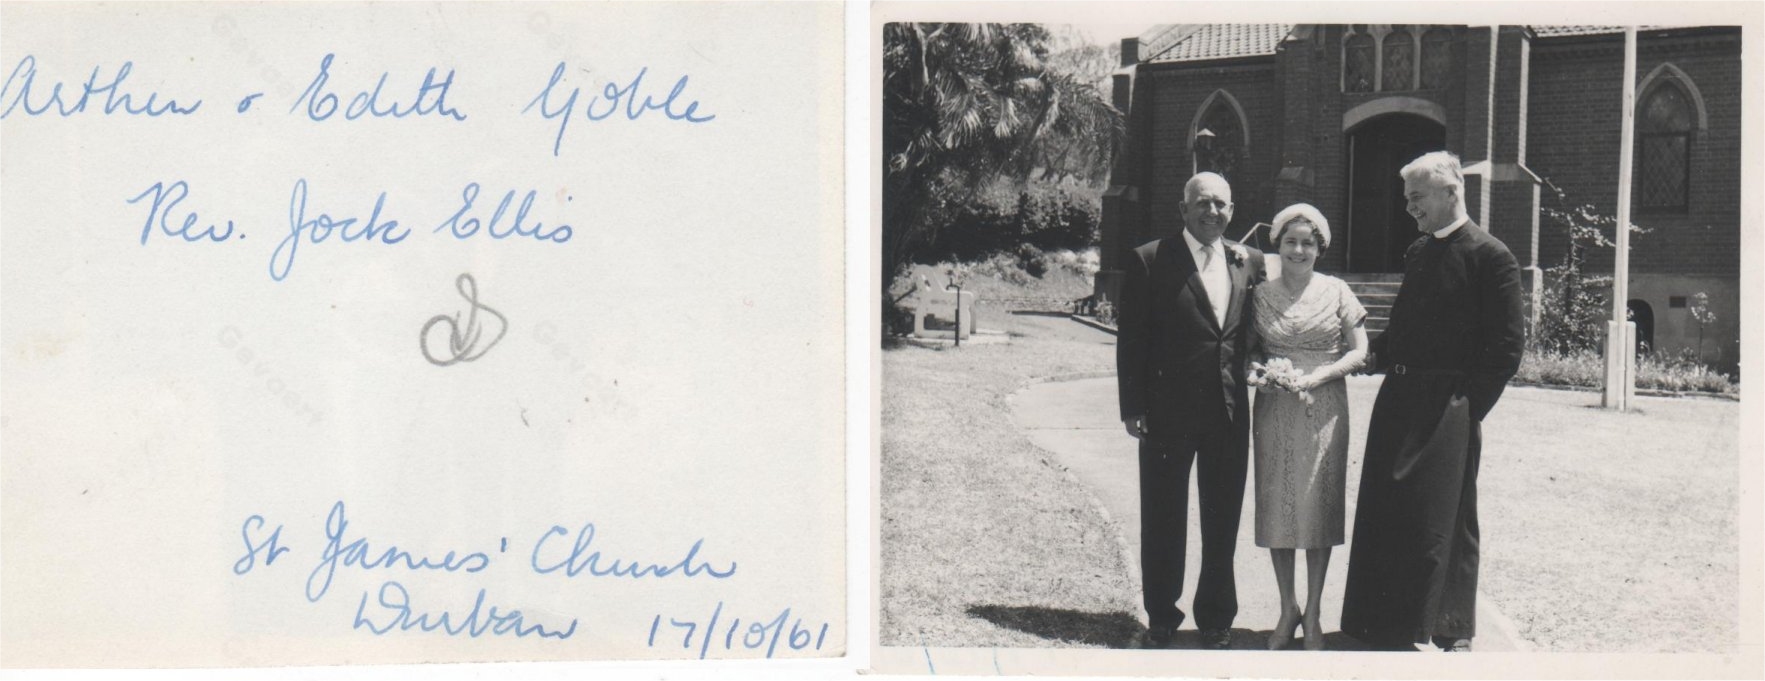 Arthur & Edith Goble
Rev. Jock Ellis
St James' Church
Durban 17/10/61
Gevaert
Gevaert